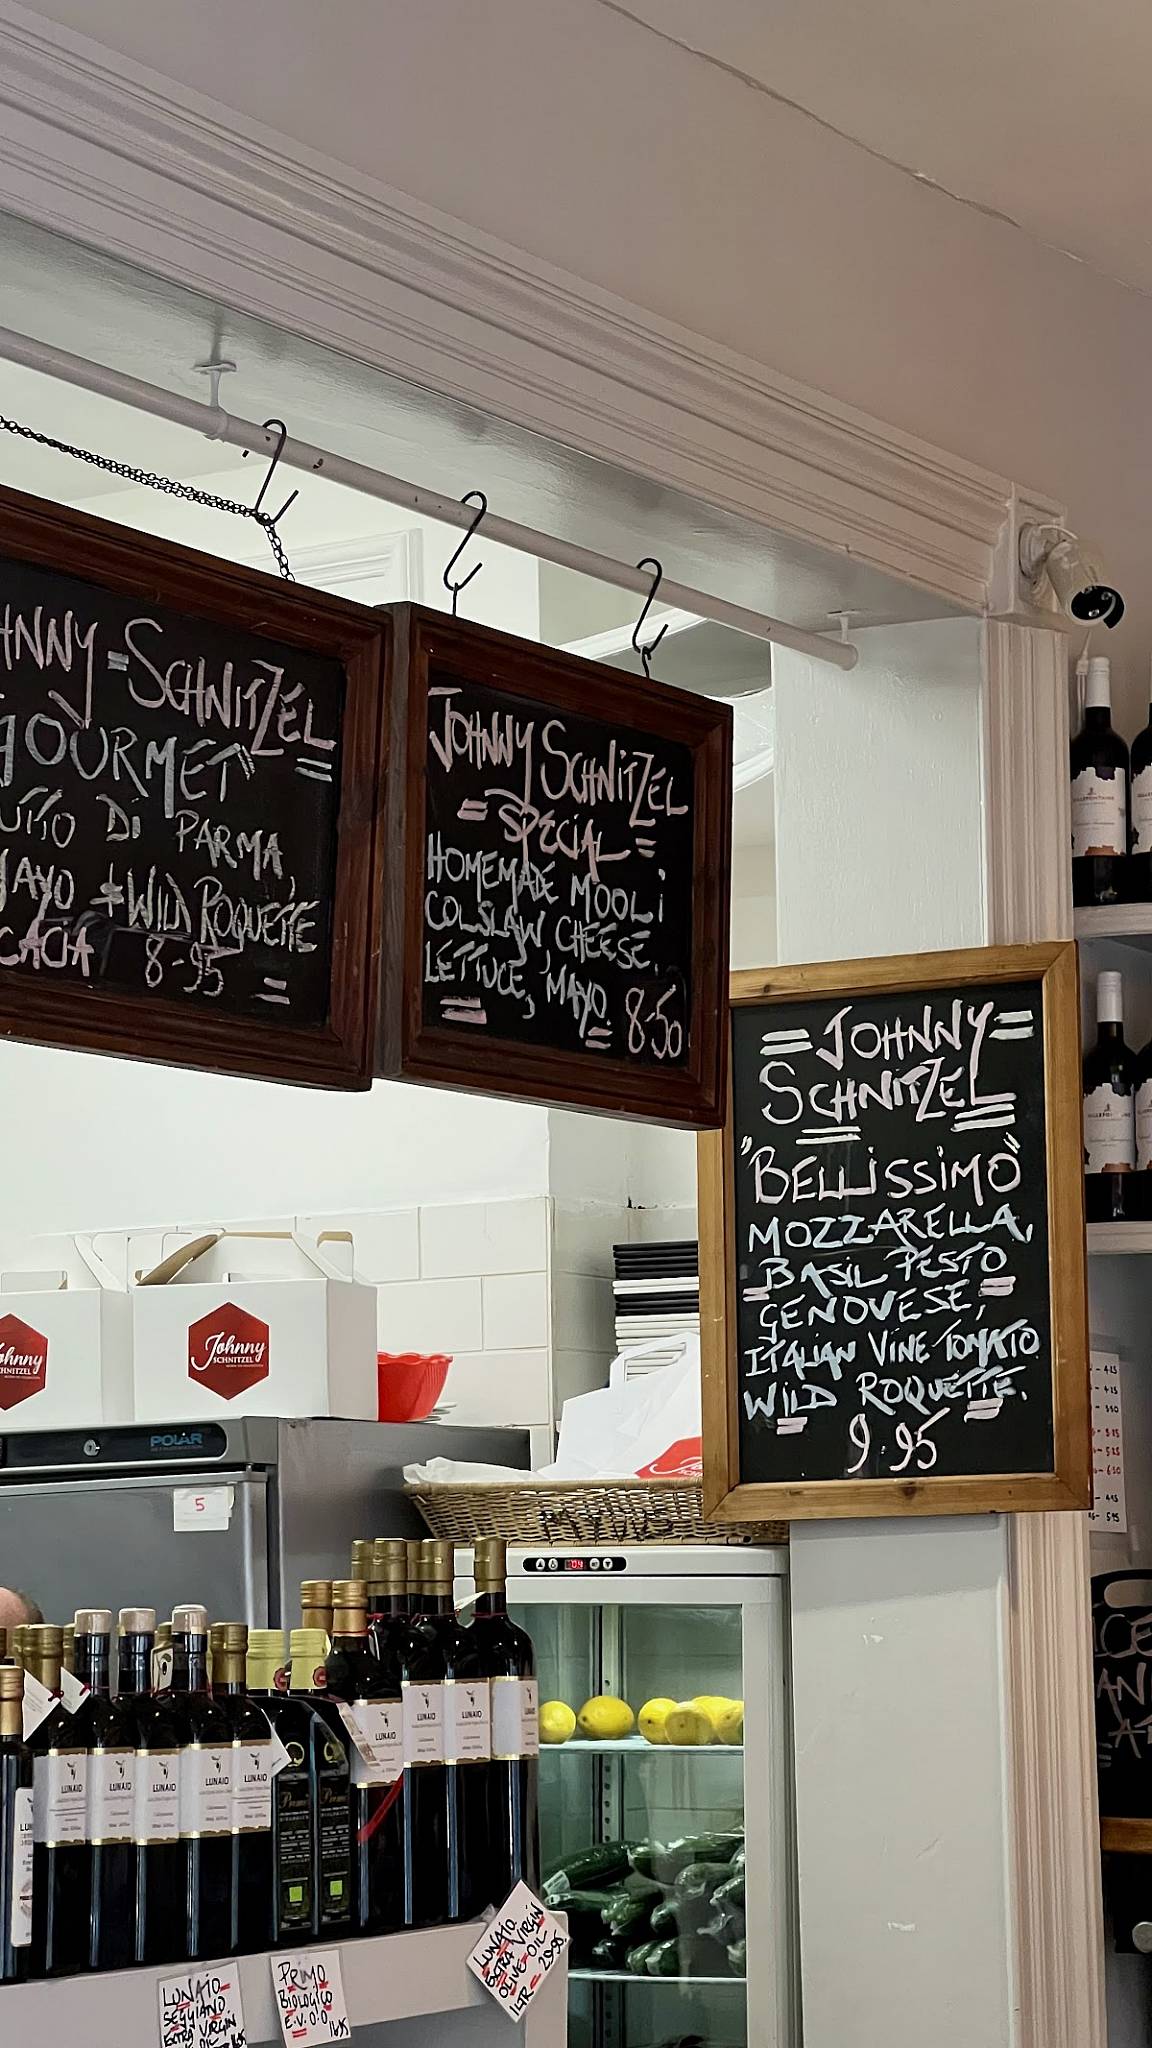 HNNY = SCHNITZEL
GOURMET" =
DI PARMA,
MAYO + WILD ROQUETTE
8-95 =
JOHNNY SCHNITZEL
= SPECIAL =
HOMEMADE MOOLI
COLSLAW, CHEESE,
LETTUCE, MAYO.
= = 8-50
= JOHNNY =
SCHNITZEL
"BELLISSIMO"
MOZZARELLA,
BASIL PESTO
GENOVESE,
ITALIAN VINE TOMATO
WILD ROQUETTE.
9.95
Johnny
SCHNITZEL
Johnny
SCHNITZEL
POLAR
REFRIGERATION
5
LUNAIO
LUNAIO
LUNAIO
LUNAIO
LUNAIO
LUNAIO
LUNAIO
LUNAIO
Primo
Primo
LUNAIO
SEGGIANO
EXTRA VIRGIN
OIL
PRIMO
BIOLOGICO
E.V.O.O
LUNAIO
EXTRA VIRGIN
OLIVE OIL
1LTR - 29.95